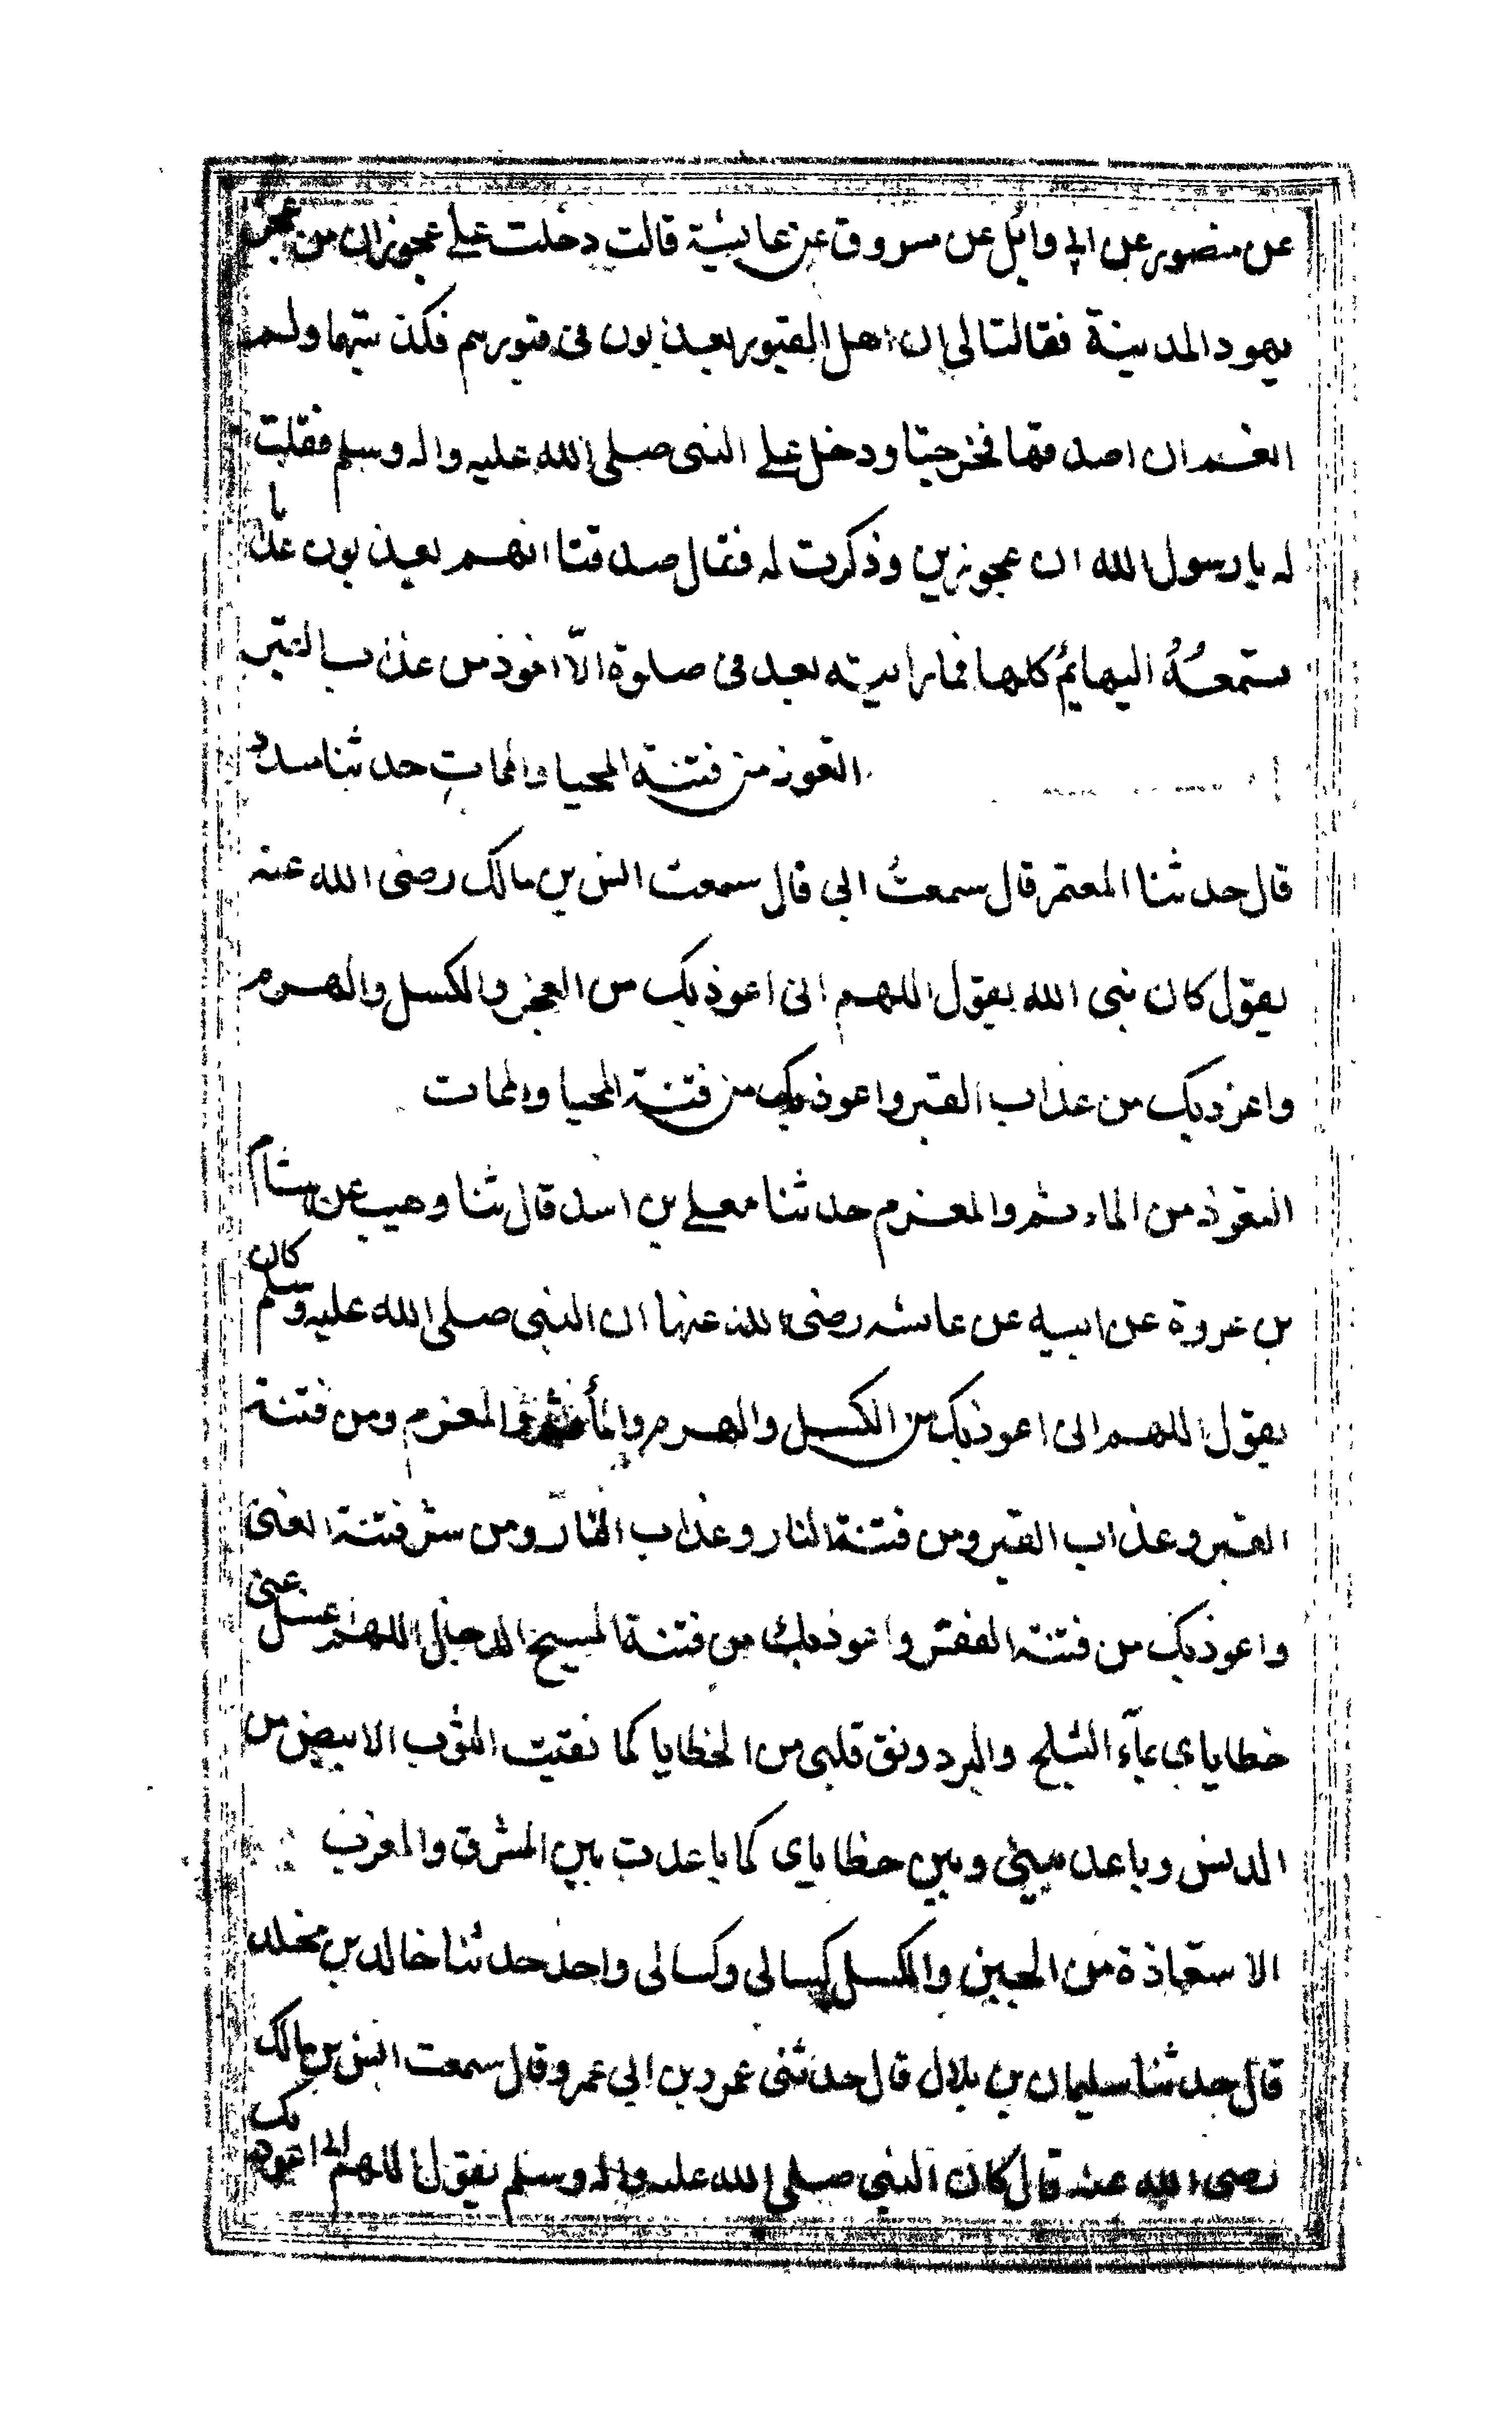 عن منصور عن ابى وائل عن مسروق عن عائشة قالت دخلت على عجوزان من عجز
يهود المدينة فقالتا لى ان اهل القبور يعذبون فى قبورهم فكذبتهما ولم
انعم ان اصدقهما فخرجتا ودخل على النبى صلى الله عليه واله وسلم فقلت
له يا رسول الله ان عجوزين وذكرت له فقال صدقتا انهم يعذبون عذابا
تسمعه البهائم كلها فما رايته بعد فى صلوة الا تعوذ من عذاب القبر
التعوذ من فتنة المحيا والممات حدثنا مسدد
قال حدثنا المعتمر قال سمعت ابى قال سمعت انس بن مالك رضى الله عنه
يقول كان نبى الله يقول اللهم انى اعوذ بك من العجز والكسل والهرم
واعوذ بك من عذاب القبر واعوذ بك من فتنة المحيا والممات
التعوذ من الماءثم والمغرم حدثنا معلى بن اسد قال ثنا وهيب عن هشام
بن عروة عن ابيه عن عائشه رضى الله عنها ان النبى صلى الله عليه وسلم كان
يقول اللهم انى اعوذ بك من الكسل والهرم والمأثم والمغرم ومن فتنة
القبر وعذاب القبر ومن فتنة النار وعذاب النار ومن شر فتنة الغنى
واعوذ بك من فتنة الفقر واعوذ بك من فتنة المسيح الدجال اللهم اغسل عنى
خطاياى بماء الثلج والبرد ونق قلبى من الخطايا كما نقيت الثوب الابيض من
الدنس وباعد بينى وبين خطاياى كما باعدت بين المشرق والمغرب
الاستعاذة من الجبن والكسل كسالى وكسالى واحد حدثنا خالد بن مخلد
قال حدثنا سليمان بن بلال قال حدثنى عمرو بن ابى عمرو قال سمعت انس بن مالك
رضى الله عنه قال كان النبى صلى الله عليه واله وسلم يقول اللهم انى اعوذ بك